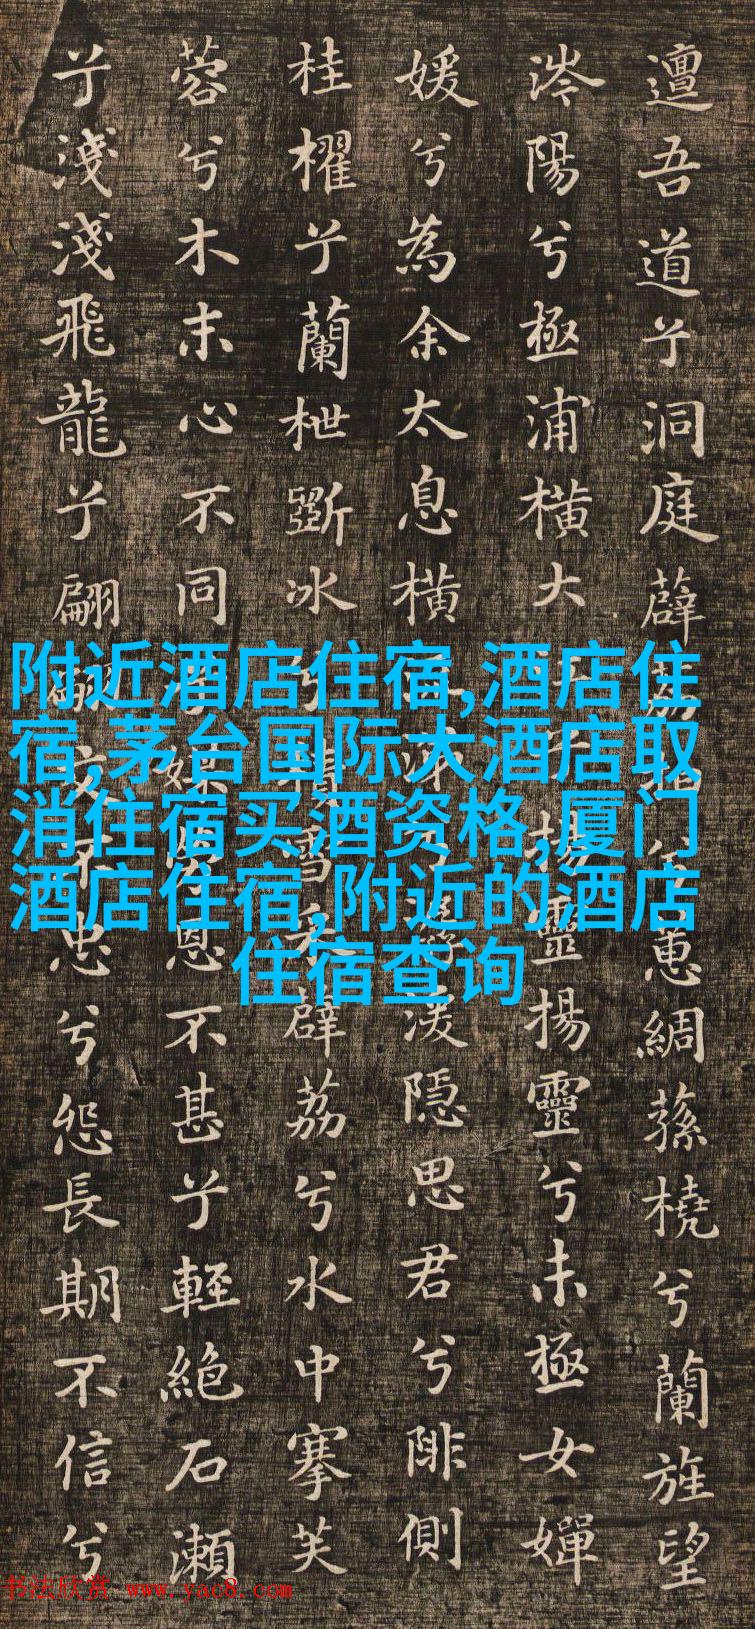 邅吾道兮洞庭薜荔拍兮蕙綢蓀橈兮蘭旌望
涔陽兮極浦橫大江兮揚靈揚靈兮未極女嬋
媛兮為余太息橫流涕兮潺湲隱思君兮陫側
桂櫂兮蘭枻斲冰兮積雪采薜荔兮水中搴芙
蓉兮木末心不同兮媒勞恩不甚兮輕絕石瀨
兮淺淺飛龍兮翩翩交不忠兮怨長期不信兮
附近酒店住宿,酒店住
宿,茅台国际大酒店取
消住宿买酒资格,厦门
酒店住宿,附近的酒店
住宿查询
书法欣赏 www.yac8.com